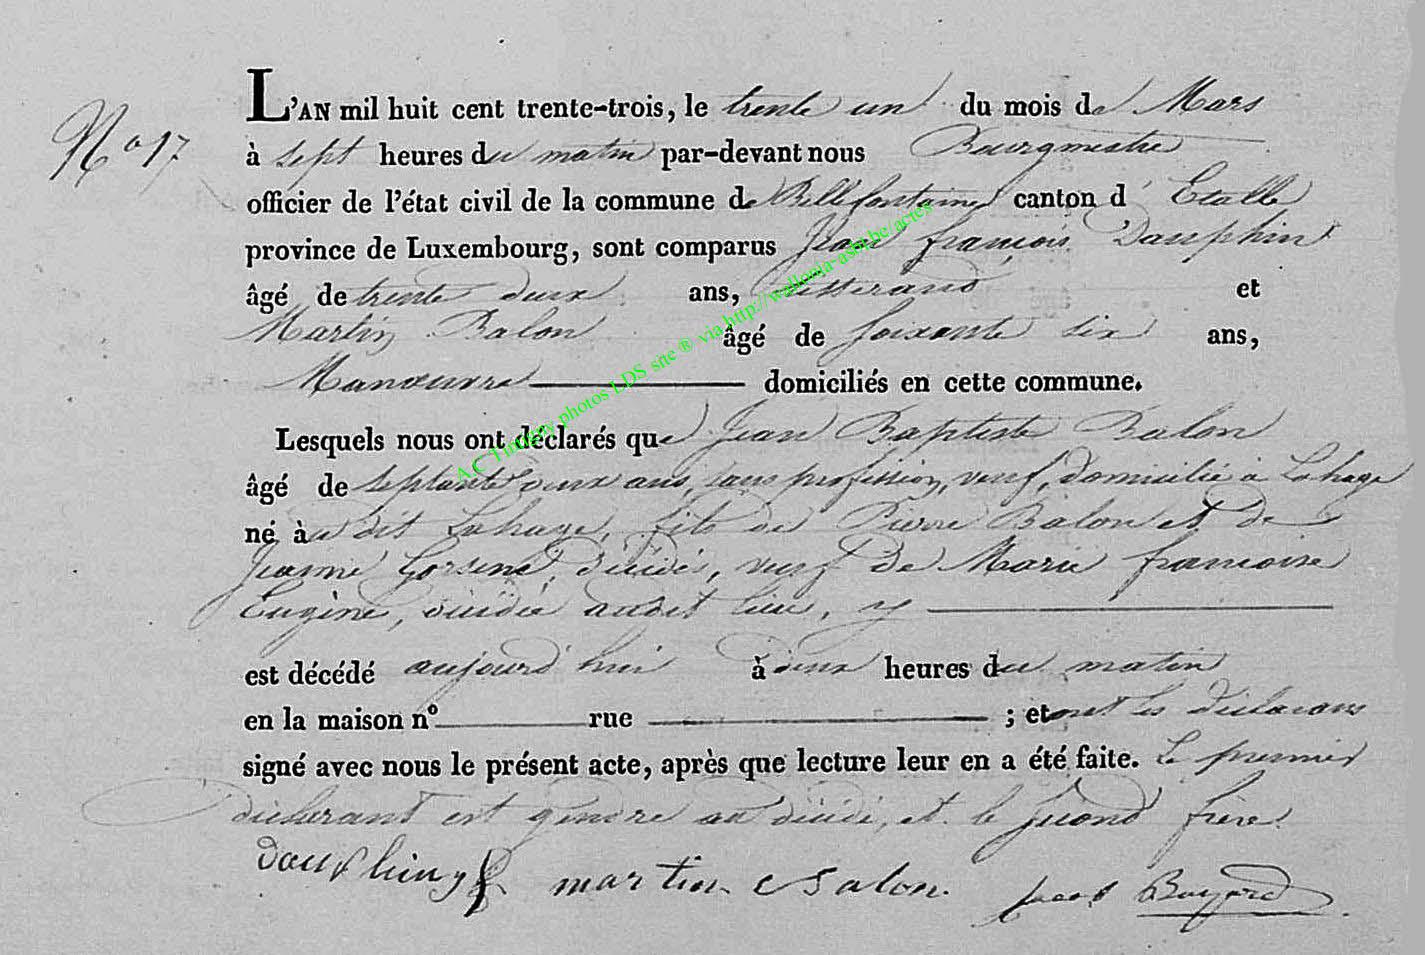 N° 17
L'AN mil huit cent trente-trois, le trente un du mois de Mars
à sept heures du matin par-devant nous Bourgmestre
officier de l'état civil de la commune de Bellefontaine canton d' Etalle
province de Luxembourg, sont comparus Jean françois Dauphin
âgé de trente deux ans, tisserand et
Martin Balon âgé de soixante six ans,
Manœuvre domiciliés en cette commune.
Lesquels nous ont déclarés que Jean Baptiste Balon
âgé de septante deux ans, sans profession, veuf, domicilié à Lahage
né à dit Lahage, fils de Pierre Balon et de
Jeanne décédés, veuf de Marie françoise
Eugène, décédée audit lieu, y
est décédé aujourd'hui à deux heures du matin
en la maison n° rue ; et ont les déclarans
signé avec nous le présent acte, après que lecture leur en a été faite. Le premier
déclarant est gendre au décédé, et le second frère.
dauphin martin Balon. Jacob Bayard
A.C Tintigny photos LDS site ® via http://wallonia-asbl.be/actes